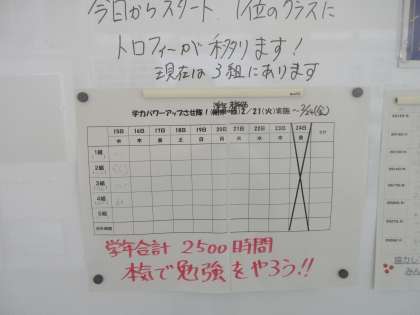 今日からスタート 1位のクラスに
トロフィーが移ります!
現在は3組にあります
学力パワーアップさせ隊!
2/21(火)実施~2/24(金)
15日 16日 17日 18日 19日 20日 21日 22日 23日 24日
水 木 金 土 日 月 火 水 木 金
1組
2組
3組
4組
5組
学年合計 2500時間
本気で勉強をやろう!!